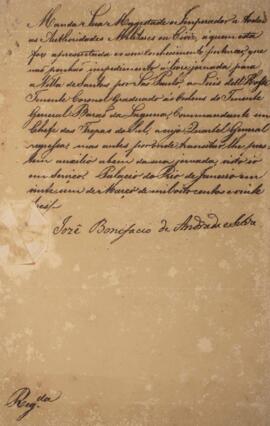 Manda Sua Magestade o Imperador a todas
as Authoridades Militares ou Civis, a quem esta
for apresentada e o seu conhecimento pertencer, que
não ponhão impedimento à livre jornada, para
a Villa de Santos por São Paulo, a Luis
Tenente Coronel Graduado às ordens do Tenente
General Barão da Laguna, Commandante em
Chefe das Tropas do Sul, a cujo Quartel General
regressa; mas antes por onde transitar lhe pres
tem auxilio a bem da sua jornada, visto ir
em serviço. Palacio do Rio de Janeiro em
vinte um de Março de mil oito centos e vinte
tres
José Bonifacio de Andrada e Silva
Reg.da